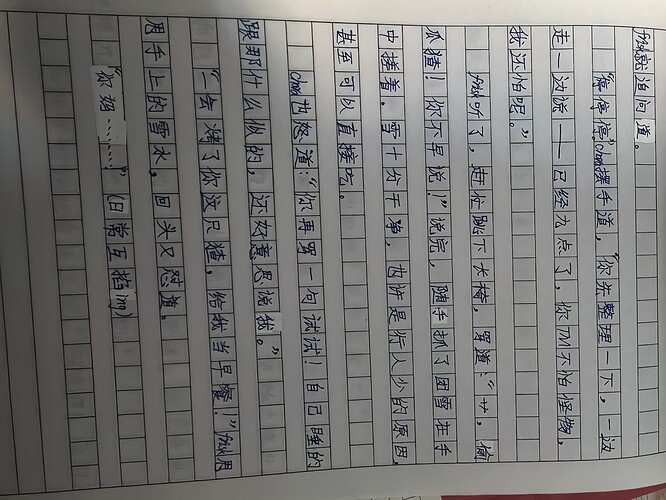 fsk就追问道。
“停停停”chm摆手道，“你先整理一下，一边
走一边说——已经九点了，你TM不怕怪物，
我还怕呢。”
fsk听了，赶忙跳下长椅，骂道：“艹，偷
瓜猹！你不早说！”说完，随手抓了团雪在手
中搓着。雪十分干净，也许是行人少的原因，
甚至可以直接吃。
chm也怒道：“你再骂一句试试！自己睡的
跟那什么似的，还好意思说我”。
“一会烤了你这只猹，给我当早餐！”fsk甩
甩手上的雪水，回头又怼道。
“你……”（日常互掐ing）